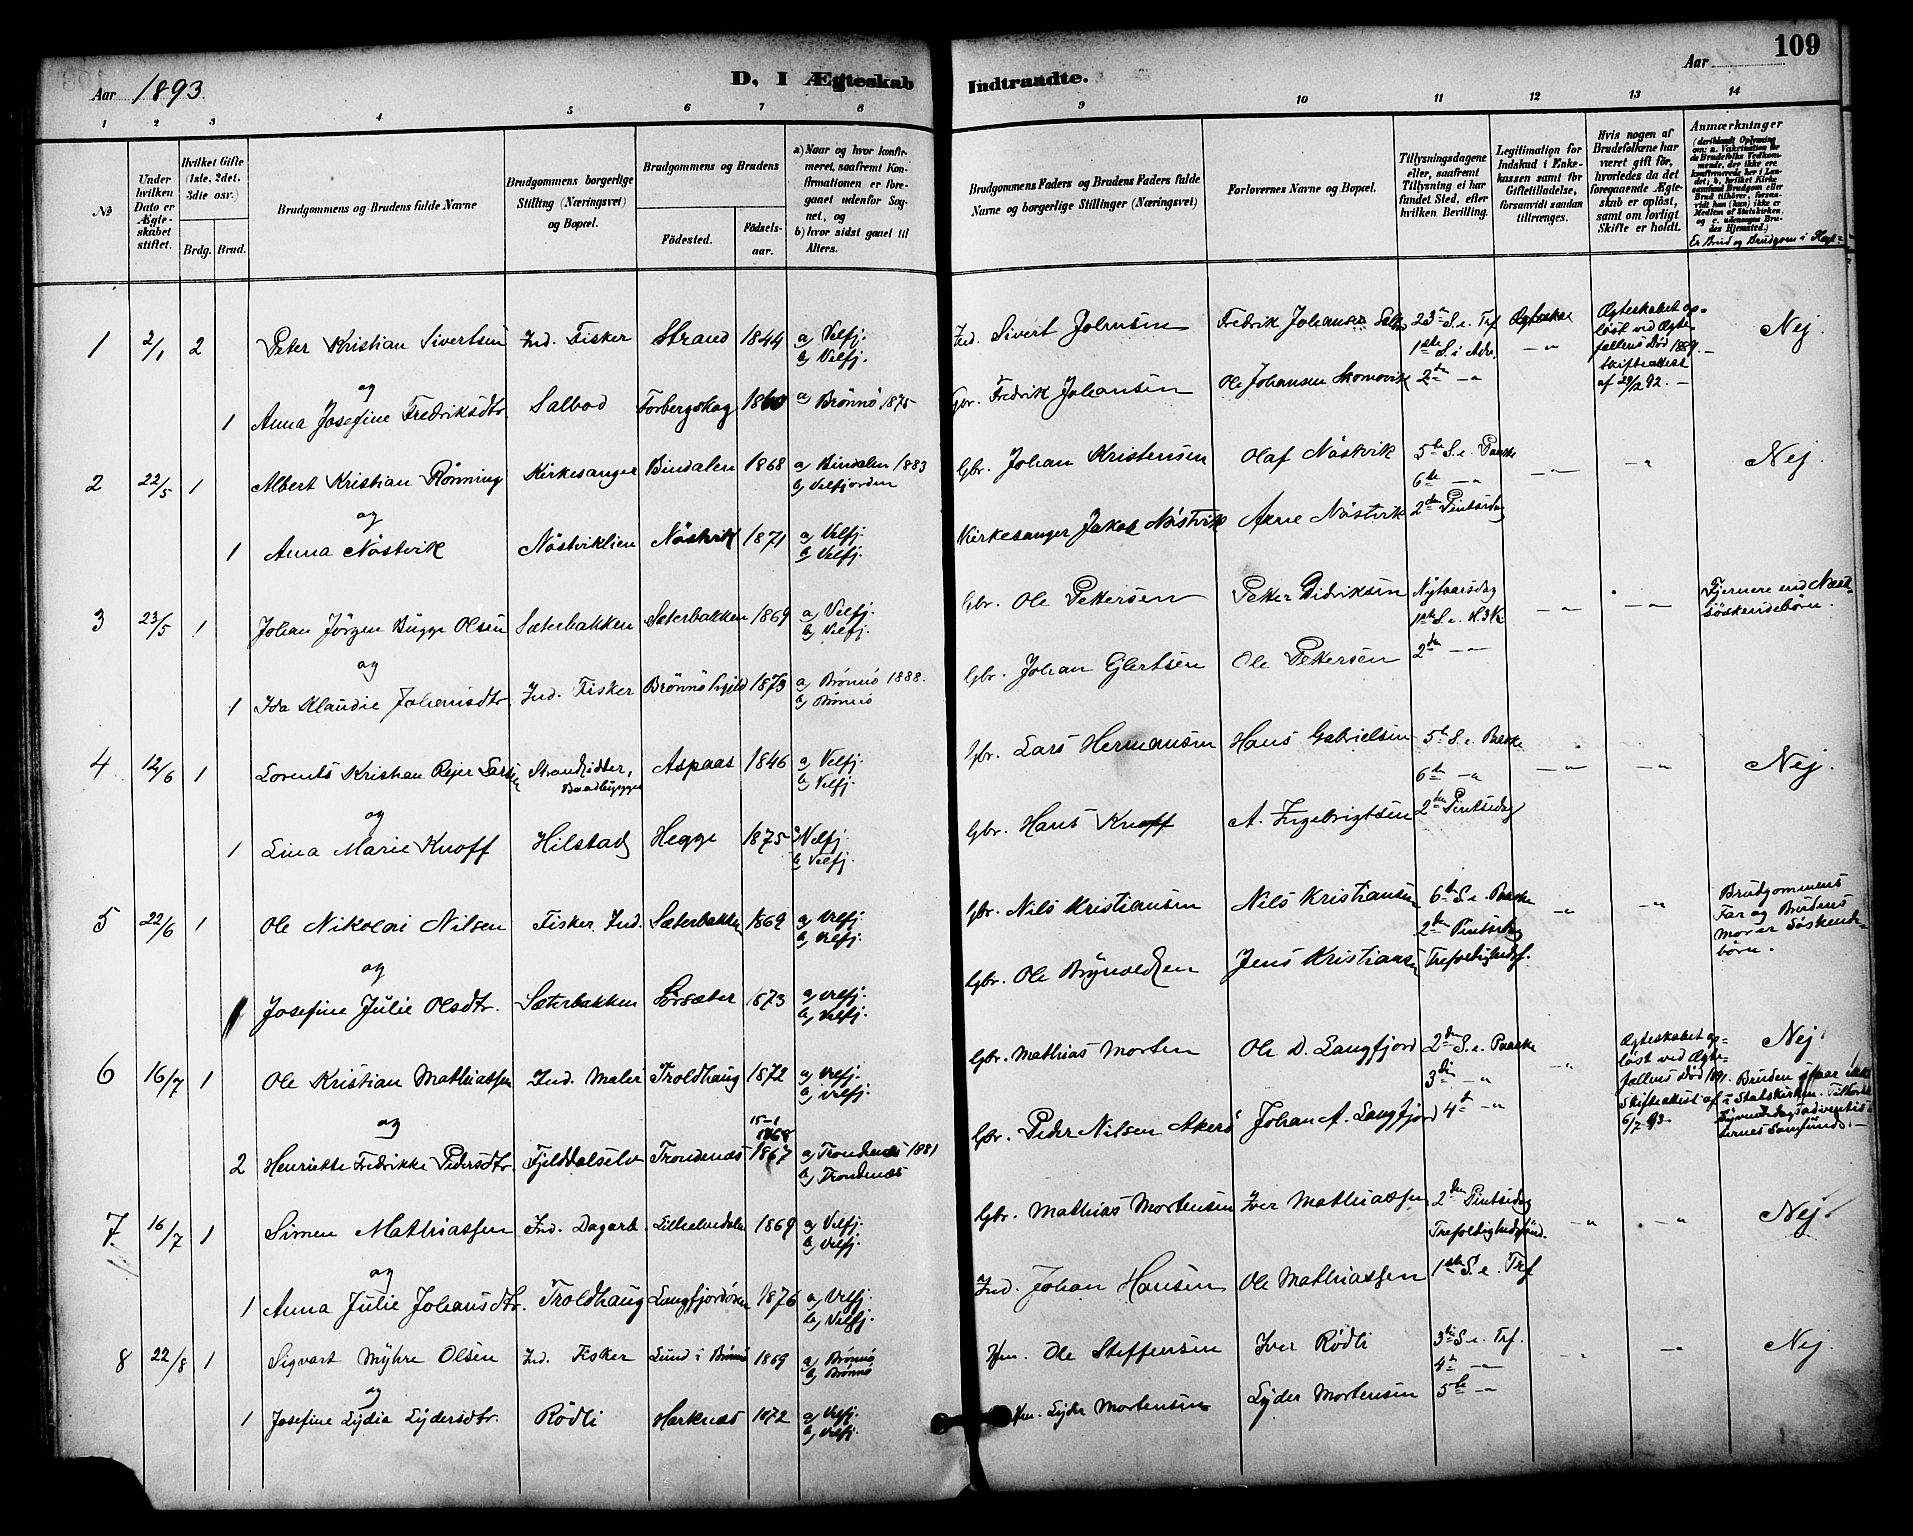 109
Aar 1893.
D, I Ægteskab Indtraadte.
Aar
1 2 3 4 5 6 7 8 9 10 11 12 13 14
№
Under hvilken Dato er Ægteskabet stiftet.
Hvilket Gifte (1ste, 2det, 3die osv.)
Brdg. Brud.
Brudgommens og Brudens fulde Navne
Brudgommens borgerlige Stilling (Næringsvei) og Bopæl.
Brudgommens og Brudens
Fødested. Fødselsaar.
a) Naar og hvor konfirmeret, saafremt Konfirmationen er foregaaet udenfor Sognet, og
b) hvor sidst gaaet til Alters.
Brudgommens Faders og Brudens Faders fulde Navne og borgerlige Stillinger (Næringsvei)
Forlovernes Navne og Bopæl.
Tillysningsdagene eller, saafremt Tillysning ei har fundet Sted, efter hvilken Bevilling.
Legitimation for Indskud i Enkekassen samt for Giftetilladelse, forsaavidt saadan tiltrænges.
Hvis nogen af Brudefolkene har været gift før, hvorledes da det foregaaende Ægteskab er opløst, samt om lovligt Skifte er holdt.
Anmærkninger
1 2/1 2 Peter Kristian Sivertsen Ind. Fisker Strand 1844 a) Velfj. b) Velfj. Ind. Sivert Johnsen Fredrik Johansen 23de S. e. Trf 1ste S. i Adv. Ægteskabet opløst ved Ægtefællens Død 1889. Skifteattest af 29/12 92. Nej.
og
1 Anna Josefine Fredriksdtr. Salbod Torbergskog a) Brønnø 1875 Gbr. Fredrik Johansen Ole Johansen Skomovik 2den -"-
2 22/5 1 Albert Kristian Rønning Kirkesanger Bindalen 1868 a) Bindalen 1883 b) Velfjorden Gbr. Johan Kristensen Olaf Nøstvik 5te S. e. Paaske 6te -"- -"- -"- Nej.
og
1 Anna Nøstvik Nøstviklien Nøstvik 1871 a) Velfj. b) Velfj. Kirkesanger Jakob Nøstvik Arne Nøstvik 2den Pintsedag
3 23/5 1 Johan Jörgen Bugge Olsen Sæterbakken Sæterbakken 1869 a) Velfj. b) Velfj. Gbr. Ole Pettersen Petter Didriksen Nytaarsdag 1ste S. e. H.3K -"- -"- Fjernere end Næstsøskendebørn.
og
1 Ida Klaudie Johansdtr. Ind. Fisker 1873 a) Brønnø 1888. b) Brønnø Gbr. Johan Ejlertsen Ole Pettersen 2den -"-
4 12/6 1 Lorents Kristian Rejer Larsen Strandsidder, Baadbygger Aspaas 1846 a) Velfj. b) Velfj. Gbr. Lars Hermansen Hans Gabrielsen 5te S. e. Paaske 6te -"- -"- -"- Nej.
og
1 Lina Marie Knoff Hilstad Hegge 1875 a) Velfj b) Velfj. Gbr. Hans Knoff A. Ingebrigtsen 2den Pintsedag
5 22/6 1 Ole Nikolai Nilsen Fisker. Ind. Sæterbakken 1869 a) Velfj. b) Velfj. Gbr. Nils Kristiansen Nils Kristiansen 6te S. e. Paaske 2den Pintsedag -"- -"- Brudgommens Far og Brudens Mor er Søskendebørn.
og
1 Josefine Julie Olsdtr. Sæterbakken Sørsæter 1873 a) Velfj. b) Velfj. Gbr. Ole Brynoldsen Jens Kristiansen Trefoldighedsf.
6 16/7 1 Ole Kristian Mathiassen Ind. Maler Troldhaug 1872 a) Velfj. b) Velfj. Gbr. Mathias Morten Ole D. Langfjord 2den S. e. Paaske 3die -"- -"- Ægteskabet opløst ved Ægtefællens Død 1891. Skifteattest af 6/7 93. Nej. Bruden staar ikke i Statskirken. Tilhører Syvendedagsadventisternes Samfund.
og
2 Henriette Fredrikke Pedersdtr. Fjelddalselv Trondenæs 15-1 1868 1867 a) Trondenæs 1881 b) Trondenæs Gbr. Peder Nilsen Johan A. Langfjord 4de -"-
7 16/7 1 Simen Mathiassen Ind. Dagarb. 1869 a) Velfj. b) Velfj. Gbr. Mathias Mortensen Iver Mathiassen 2den Pintsedag Trefoldighedssønd. -"- -"- Nej.
og
1 Anna Julie Johansdtr. Troldhaug Langfjordøren 1876 a) Velfj. b) Velfj. Ind. Johan Hansen Ole Mathiassen 1ste S. e. Trf
8 22/8 1 Sigvart Myhre Olsen Ind. Fisker Lund i Brønnø 1869 a) Brønnø b) Brønnø Ole Steffensen Iver Rødli 3die S. e. Trf. 4de -"- -"- -"- Nej.
og
1 Josefine Lydia Lydersdtr. Rødli Harknæs 1872 a) Velfj. b) Velfj. Lyder Mortensen Lyder Mortensen 5te -"-